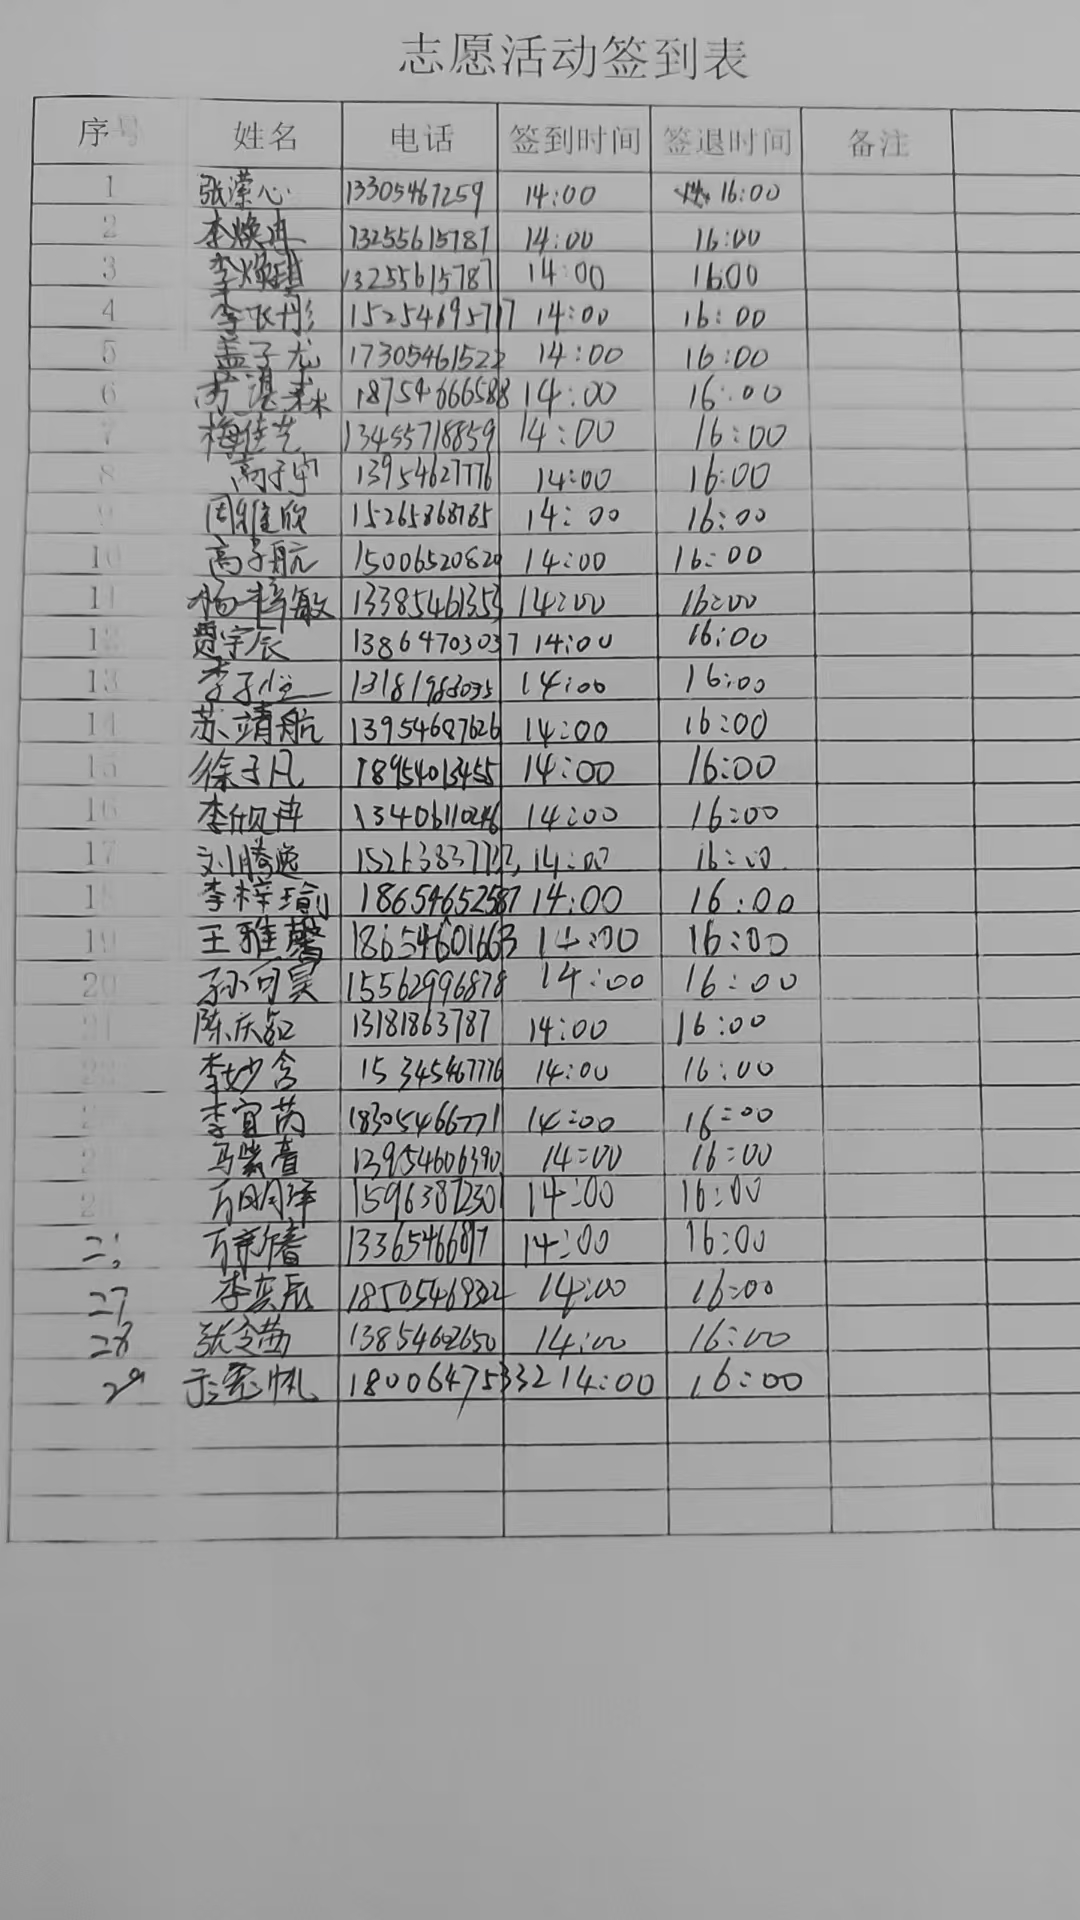 志愿活动签到表
序号 姓名 电话 签到时间 签退时间 备注
1 张潆心 13305467259 14:00 16:00
2 李焕冉 13255615787 14:00 16:00
3 李焕琪 13255615787 14:00 16:00
4 李 彤 15254695717 14:00 16:00
5 盖子尤 17305461522 14:00 16:00
6 18754666588 14:00 16:00
7 梅佳艺 13455718859 14:00 16:00
8 高子宇 13954627776 14:00 16:00
9 周雅欣 15265868785 14:00 16:00
10 高子航 15006520820 14:00 16:00
11 杨梓敏 13385461353 14:00 16:00
12 贾宇辰 13864703037 14:00 16:00
13 李子 14:00 16:00
14 苏靖航 13954687626 14:00 16:00
15 徐子凡 18954013455 14:00 16:00
16 李欣冉 13406110246 14:00 16:00
17 刘腾逸 14:00 16:00
18 李梓瑜 18654652587 14:00 16:00
19 王雅馨 18654601663 14:00 16:00
20 孙可昊 15562996878 14:00 16:00
21 陈庆 13181863787 14:00 16:00
22 李妙含 15345467776 14:00 16:00
李宜芮 18305466771 14:00 16:00
马紫萱 13954606390 14:00 16:00
万明泽 15963872301 14:00 16:00
万 13365466817 14:00 16:00
27 李奕辰 18505469322 14:00 16:00
28 张 茜 13854602650 14:00 16:00
29 18006475332 14:00 16:00